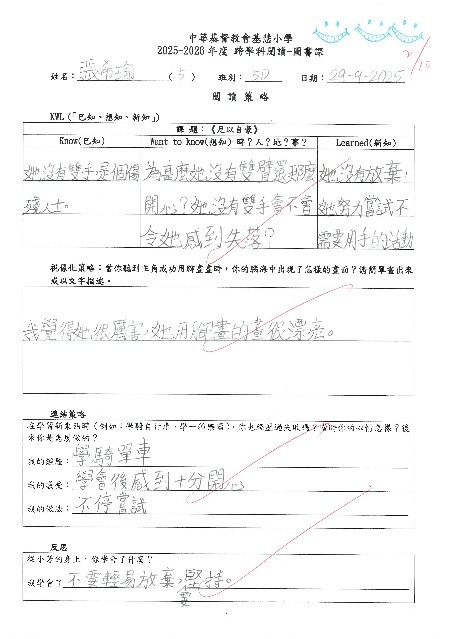 中華基督教會基慧小學
2025-2026年度 跨學科閱讀-圖書課
姓名：張希瑜 (5) 班別：5D 日期：29-9-2025
閱讀策略
KWL (「已知、想知、新知」)
課題：《足以自豪》
Know(已知) Want to know(想知)-時？人？地？事？ Learned(新知)
她沒有雙手是個傷 為甚麼她沒有雙臂還那麼 她沒有放棄，
殘人士。 開心？她沒有雙手會不會 她努力嘗試不
令她感到失落？ 需要用手的活動
視像化策略：當你聽到主角成功用腳畫畫時，你的腦海中出現了怎樣的畫面？請簡單畫出來
或以文字描述。
我覺得她很厲害，她用腳畫的畫很漂亮。
連結策略
在學習新東西時（例如：學騎自行車、學一種樂器），你也經歷過失敗嗎？當時你的心情怎樣？後
來你是怎麼做的？
我的經歷：學騎單車
我的感受：學會後感到十分開心
我的做法：不停嘗試
反思
從小芳的身上，你學會了什麼？
我學會了不要輕易放棄，要堅持。